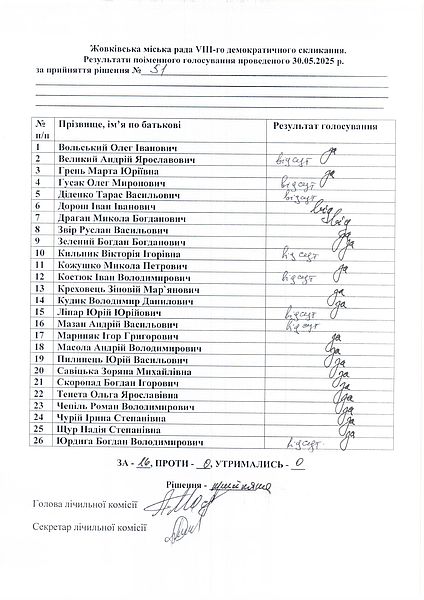 Жовківська міська рада VIII-го демократичного скликання.
Результати поіменного голосування проведеного 30.05.2025 р.
за прийняття рішення № 51
№ п/п Прізвище, ім’я по батькові Результат голосування
1 Вольський Олег Іванович за
2 Великий Андрій Ярославович відсут
3 Грень Марта Юріївна за
4 Гусак Олег Миронович відсут
5 Діденко Тарас Васильович відсут
6 Дорош Іван Іванович від
7 Драган Микола Богданович від
8 Звір Руслан Васильович за
9 Зелений Богдан Богданович за
10 Кильник Вікторія Ігорівна відсут
11 Кожушко Микола Петрович за
12 Костюк Іван Володимирович відсут
13 Креховець Зіновій Мар`янович за
14 Кудик Володимир Данилович за
15 Ліпар Юрій Юрійович відсут
16 Мазан Андрій Васильович відсут
17 Мариняк Ігор Григорович за
18 Масола Андрій Володимирович за
19 Пилипець Юрій Васильович за
20 Савіцька Зоряна Михайлівна за
21 Скоропад Богдан Ігорович за
22 Тенета Ольга Ярославівна за
23 Чепіль Роман Володимирович за
24 Чурій Ірина Степанівна за
25 Щур Надія Степанівна за
26 Юрдига Богдан Володимирович відсут.
ЗА - 16, ПРОТИ - 0, УТРИМАЛИСЬ - 0
Рішення - прийняте
Голова лічильної комісії
Секретар лічильної комісії